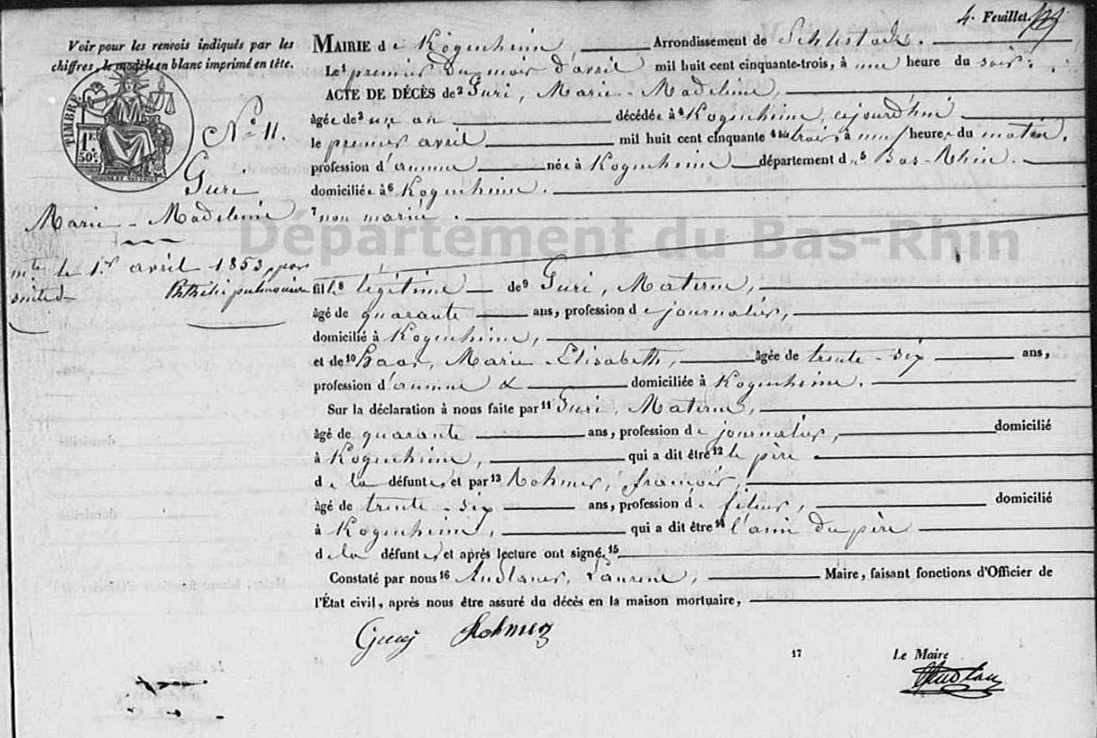 4. Feuillet.
Voir pour les renvois indiqués par les
chiffres, le modèle en blanc imprimé en tête.
TIMBRE
1F
50c
N° 11.
Guri
Marie-Madeleine
le 1er avril 1853, par
Phthisie pulmonaire
MAIRIE de Kogenheim, Arrondissement de Schlestadt.
Le 1 premier du mois d'avril mil huit cent cinquante-trois, à une heure du soir.
ACTE DE DÉCÈS de 2 Guri, Marie-Madeleine,
âgée de 3 un an décédée à 4 Kogenheim, aujourd'hui
le premier avril mil huit cent cinquante trois, à neuf heures du matin.
profession d'aucune née à Kogenheim département d 5 Bas-Rhin.
domiciliée à 6 Kogenheim.
7 non mariée.
Département du Bas-Rhin
fille 8 légitime de 9 Guri, Materne,
âgé de quarante ans, profession de journalier,
domicilié à Kogenheim,
et de 10 Haas, Marie-Elisabeth, âgée de trente-six ans,
profession d'aucune & domiciliée à Kogenheim.
Sur la déclaration à nous faite par 11 Guri, Materne,
âgé de quarante ans, profession de journalier, domicilié
à Kogenheim, qui a dit être 12 le père
de la défunte, et par 13 Rohmer, François,
âgé de trente-six ans, profession de fileur, domicilié
à Kogenheim, qui a dit être 14 l'ami du père
de la défunte, et après lecture ont signé. 15
Constaté par nous 16 Andlauer, Laurent, Maire, faisant fonctions d'Officier de
l'État civil, après nous être assuré du décès en la maison mortuaire,
Rohmer
17 Le Maire